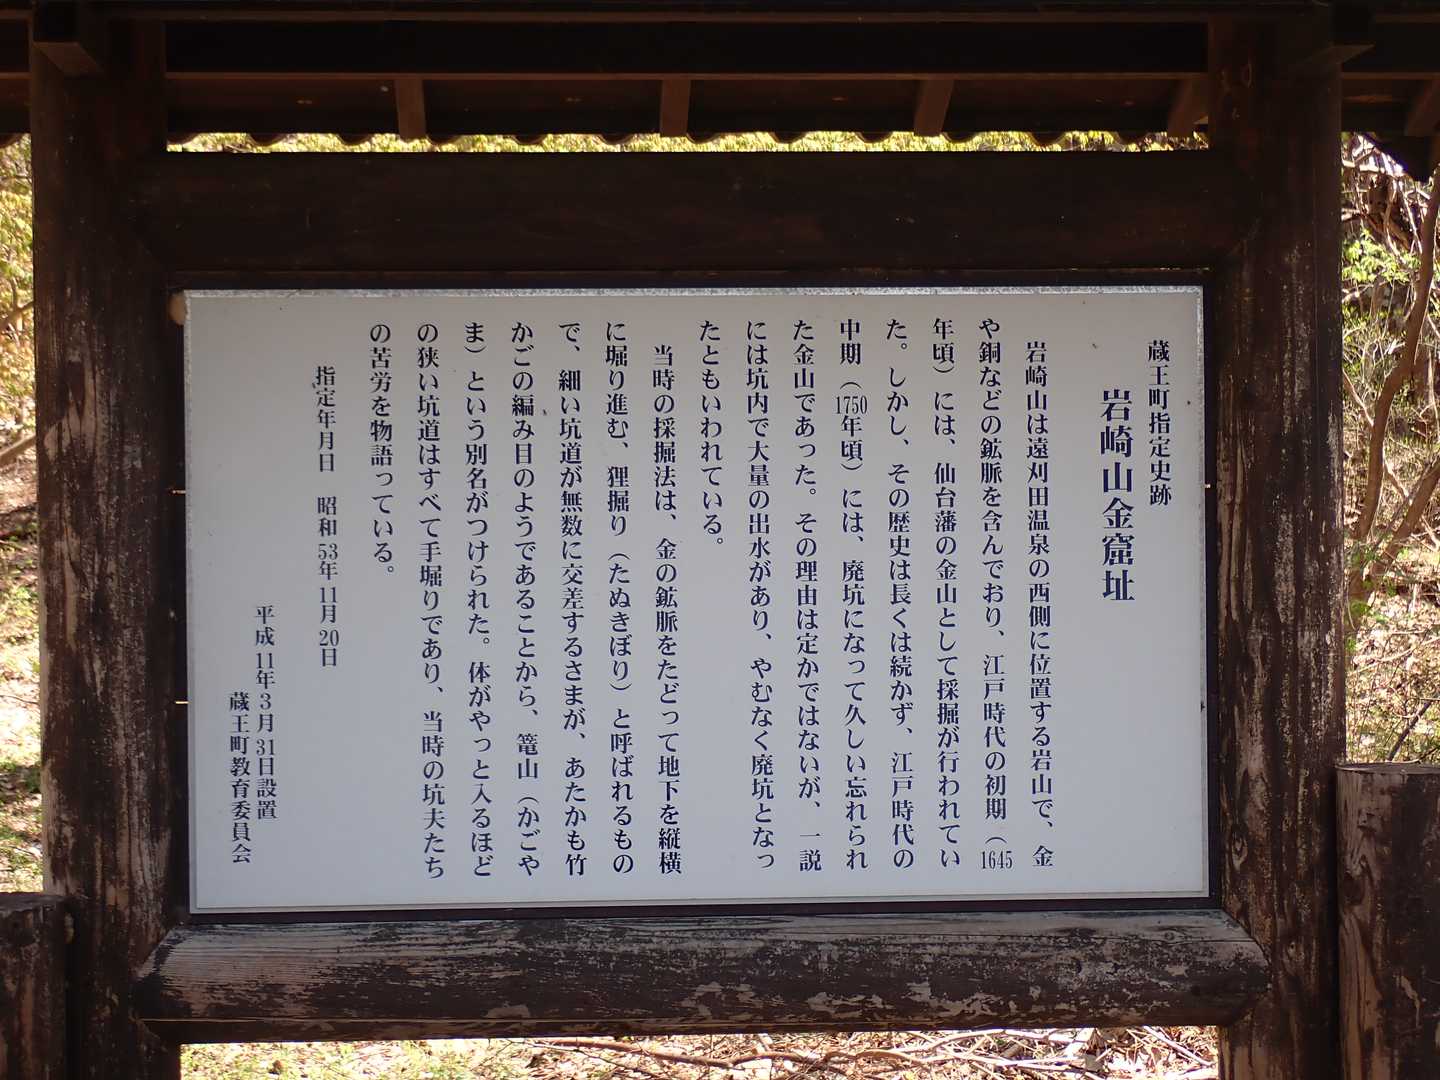 蔵王町指定史跡
岩崎山金窟址
岩崎山は遠刈田温泉の西側に位置する岩山で、金
や銅などの鉱脈を含んでおり、江戸時代の初期（1645
年頃）には、仙台藩の金山として採掘が行われてい
た。しかし、その歴史は長くは続かず、江戸時代の
中期（1750年頃）には、廃坑になって久しい忘れられ
た金山であった。その理由は定かではないが、一説
には坑内で大量の出水があり、やむなく廃坑となっ
たともいわれている。
当時の採掘法は、金の鉱脈をたどって地下を縦横
に堀り進む、狸掘り（たぬきぼり）と呼ばれるもの
で、細い坑道が無数に交差するさまが、あたかも竹
かごの編み目のようであることから、篭山（かごや
ま）という別名がつけられた。体がやっと入るほど
の狭い坑道はすべて手堀りであり、当時の坑夫たち
の苦労を物語っている。
指定年月日　昭和53年11月20日
平成11年3月31日設置
蔵王町教育委員会